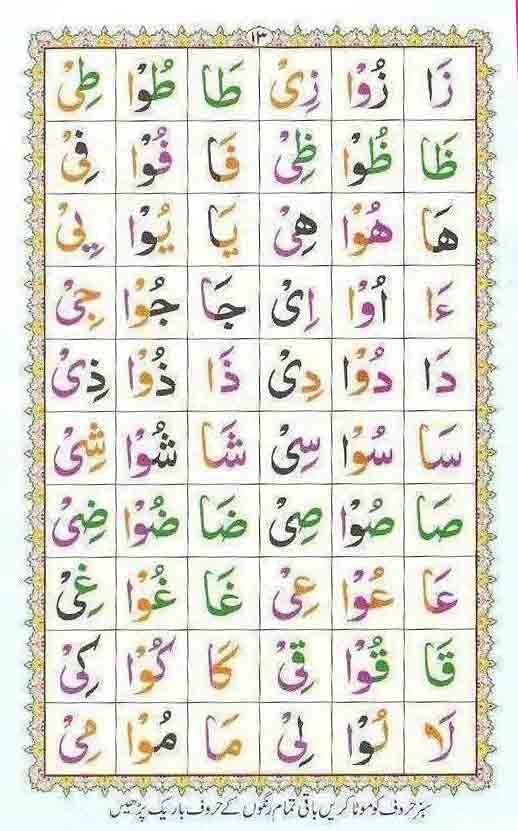 ١٣
زَا زُوْا زِىْ طَا طُوْا طِىْ
ظَا ظُوْا ظِىْ فَا فُوْا فِىْ
هَا هُوْا هِىْ يَا يُوْا يِىْ
ءَا اُوْا اِىْ جَا جُوْا جِىْ
دَا دُوْا دِىْ ذَا ذُوْا ذِىْ
سَا سُوْا سِىْ شَا شُوْا شِىْ
صَا صُوْا صِىْ ضَا ضُوْا ضِىْ
عَا عُوْا عِىْ غَا غُوْا غِىْ
قَا قُوْا قِىْ كَا كُوْا كِىْ
لَا لُوْا لِىْ مَا مُوْا مِىْ
سبز حروف کو موٹا کریں باقی تمام رنگوں کے حروف باریک پڑھیں